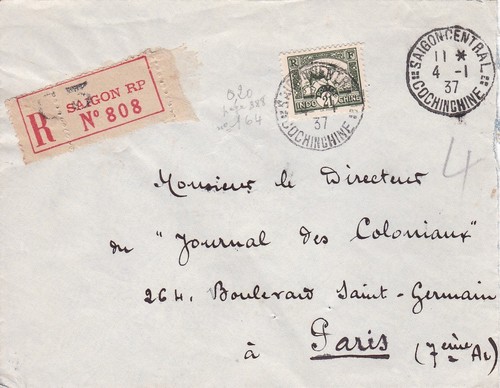 SAIGON RP
R N° 808
020
page 388
n° 164
R F
INDOCHINE
COCHINCHINE
37
SAIGON-CENTRAL
11 *
4 -1
37
COCHINCHINE
4
Monsieur le Directeur
du "Journal des Coloniaux"
264. Boulevard Saint-Germain
à Paris (7ème Ar)